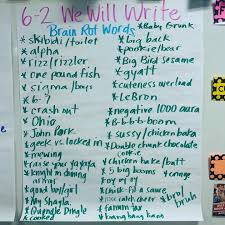 6-2 We Will Write
Brain Rot Words
*Baby Gronk
*skibidi/toilet
*alpha
*rizz/rizzler
*one pound fish
*sigma/boys
*6-7
*crash out
*Ohio
*John Pork
*geek vs. locked in
*mewing
*raise your yayaya
*knight in shining
*good boy/girl
*My Shayla
*Dangle Dingle
*cooked
*big back
*pookie/bear
*Big Bird sesame
*gyatt
*cuteness overload
*LeBron
*negative 1000 aura
*B-b-b-boom
*sussy/chicken baka
*Double chunk chocolate
cookie
*chicken bake/butt
*5 big booms
*oy oy oy
*chick-fil-a sauce
*catch
*bro/
bruh
*fanum tax
*bang bang bang